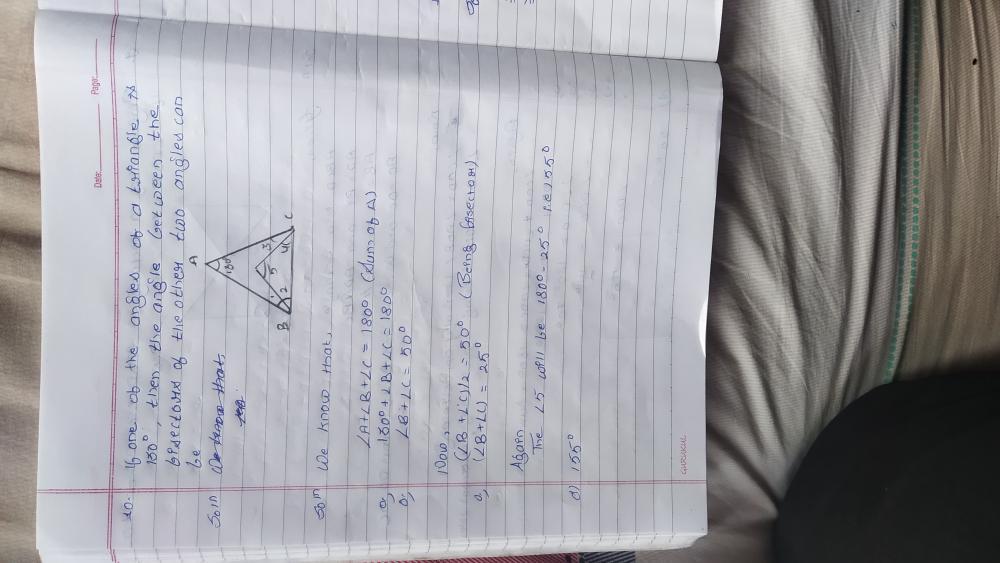 Date: Page:
10. If one of the angles of a triangle is
130°, then the angle between the
bisectors of the other two angles can
be
Soln We know that,
A
130°
B 1 2 5 3 4 C
Soln We know that,
∠A+∠B+∠C = 180° (Sum of Δ)
or, 130°+∠B+∠C = 180°
or, ∠B+∠C = 50°
Now,
(∠B+∠C)/2 = 50° (Being bisector)
or, (∠B+∠C) = 25°
Again
The ∠5 will be 180°-25° i.e 155°
d) 155°
GURUKUL